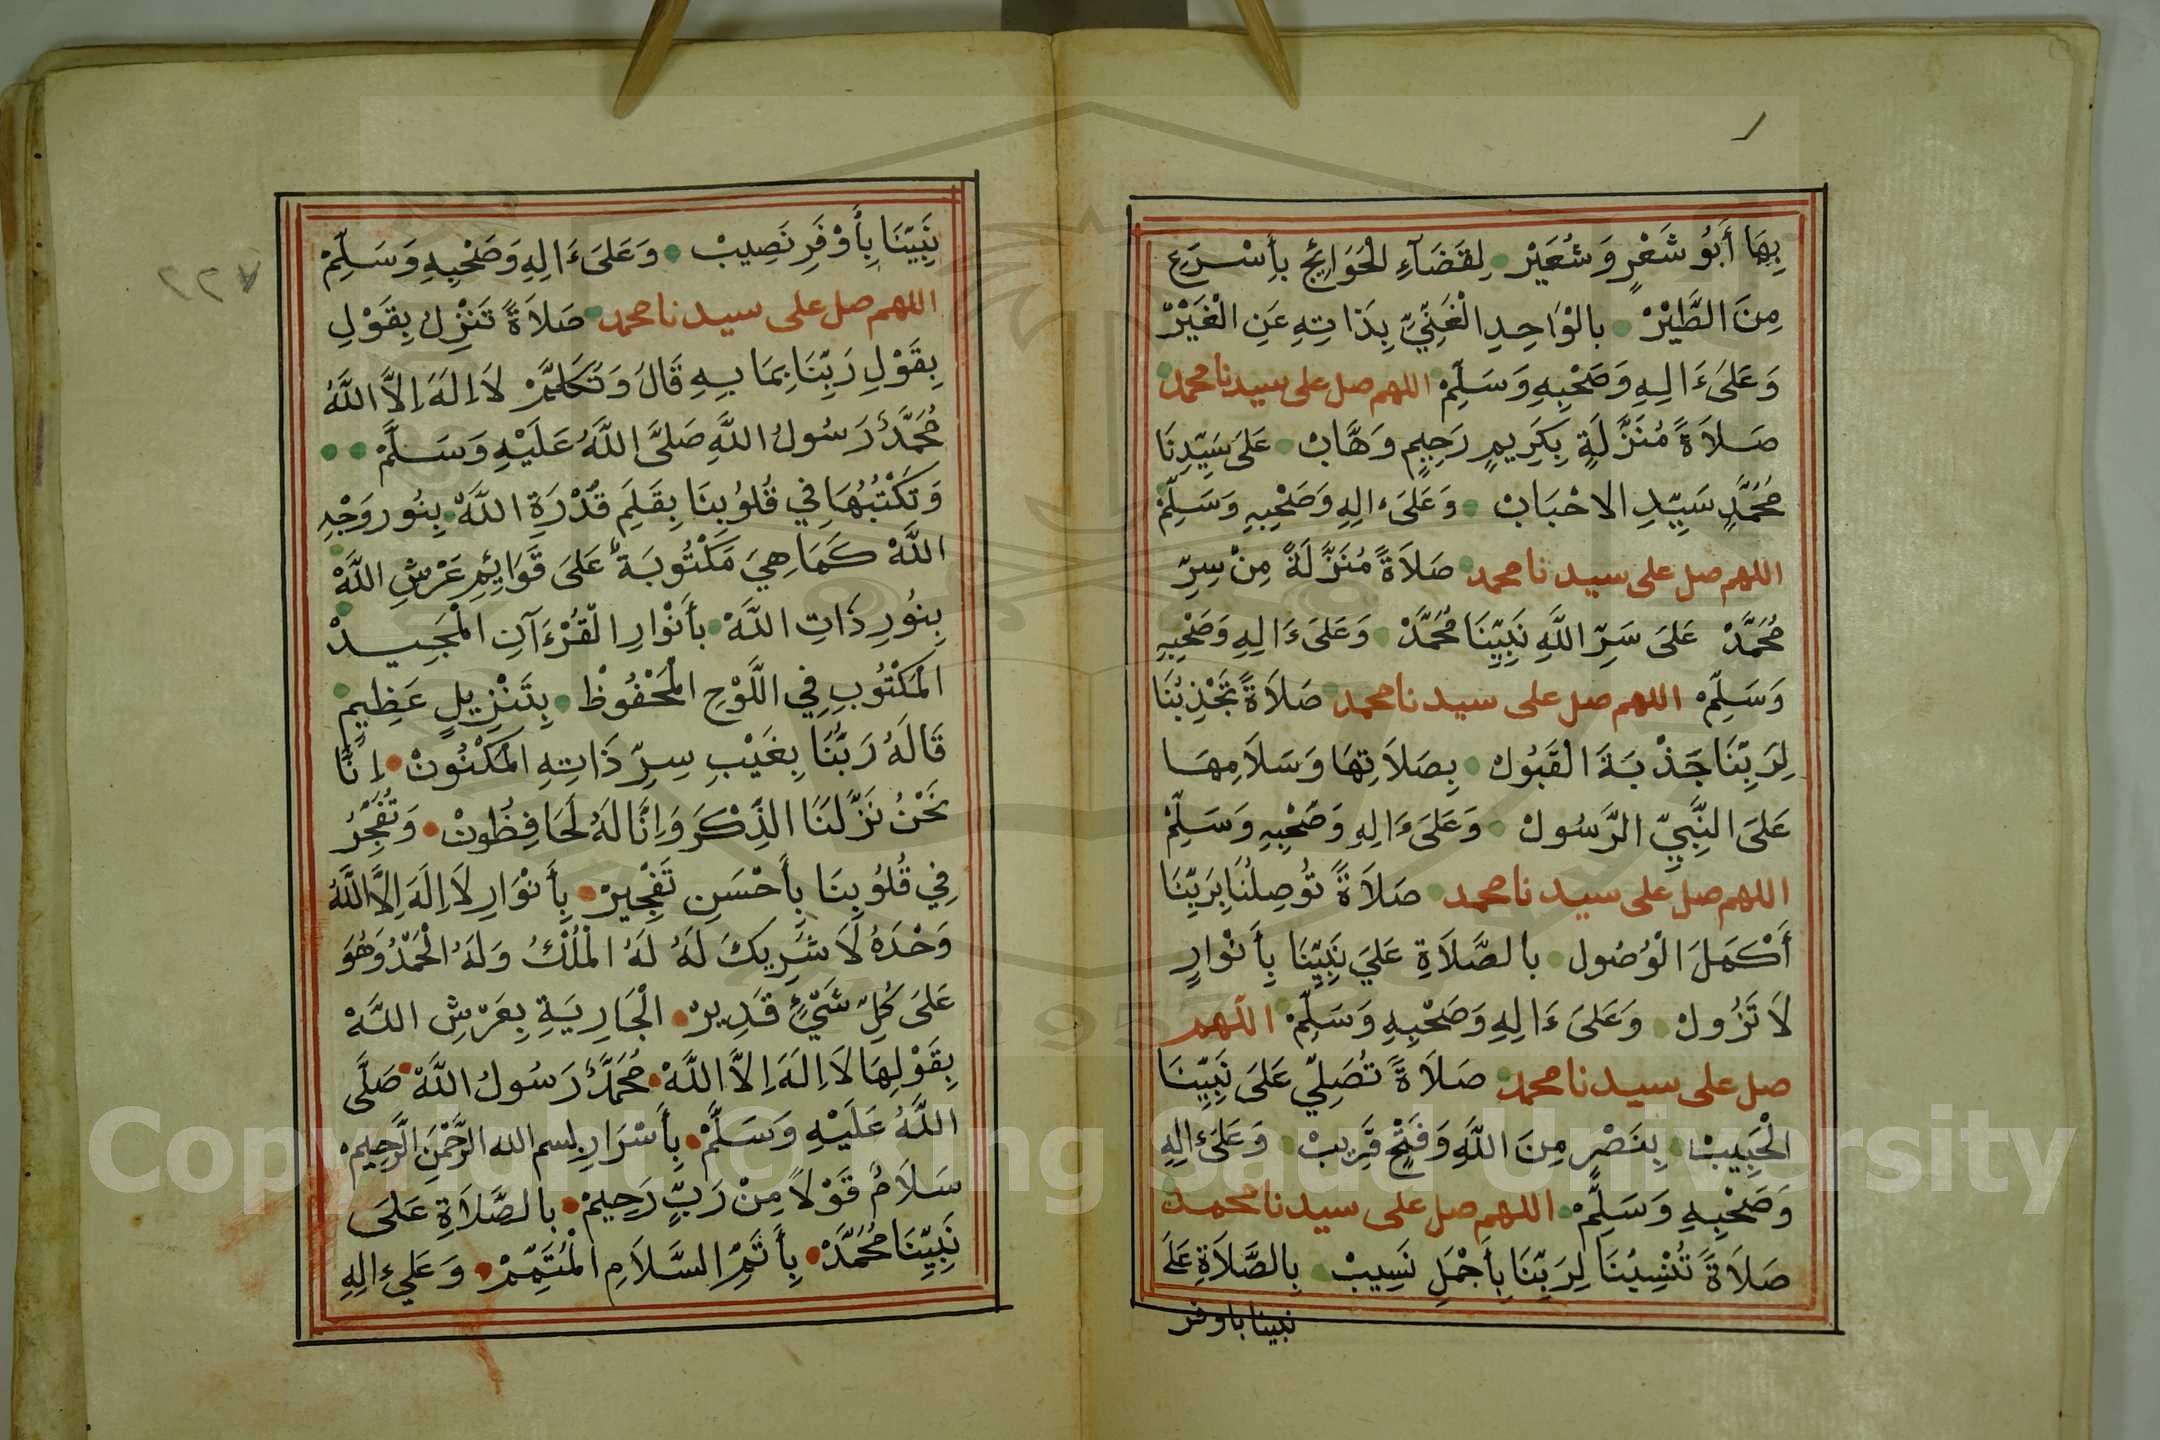 بِهَا أَبُو شَعْرٍ وَشُعَيْرْ لِقَضَآءِ الْحَوَائِجِ بِأَسْرَعِ
مِنَ الطَّيْرْ بِالْوَاحِدِ الْغَنِيِّ بِذَاتِهِ عَنِ الْغَيْرْ
وَعَلَىٰ ءَالِهِ وَصَحْبِهِ وَسَلِّمْ اللهم صل على سيدنا محمد
صَلَاةً مُنَزَّلَةٍ بِكَرِيمٍ رَحِيمٍ وَهَّابْ عَلَى سَيِّدِنَا
مُحَمَّدٍ سَيِّدِ الاحْبَابْ وَعَلَىٰ ءالِهِ وَصَحْبِهِ وَسَلِّمْ
اللهم صل على سيدنا محمد صَلَاةً مُنَزَّلَةً مِنْ سِرِّ
مُحَمَّدْ عَلَى سَرِّ اللَّهِ نَبِيِّنَا مُحَمَّدْ وَعَلَىٰ ءَالِهِ وَصَحْبِهِ
وَسَلِّمْ اللهم صل على سيدنا محمد صَلَاةً تَجْذِبُنَا
لِرَبِّنَا جَذْبَةَ الْقَبُولْ بِصَلَاتِهَا وَسَلَامِهَا
عَلَى النَّبِيِّ الرَّسُولْ وَعَلَىٰ ءَالِهِ وَصَحْبِهِ وَسَلِّمْ
اللهم صل على سيدنا محمد صَلَاةً تُوصِلُنَا بِرَبِّنَا
أَكْمَلَ الْوُصُول بِالصَّلَاةِ عَلَي نَبِيِّنَا بِأَنْوَارٍ
لَا تَزُولْ وَعَلَىٰ ءَالِهِ وَصَحْبِهِ وَسَلِّمْ اللهم
صل على سيدنا محمد صَلَاةً تُصَلِّي عَلَى نَبِيِّنَا
الْحَبِيبْ بِنَصْرٍ مِنَ اللَّهِ وَفَتْحٍ قَرِيبْ وَعَلَىٰ ءالِهِ
وَصَحْبِهِ وَسَلِّمْ اللهم صل على سيدنا محمد
صَلَاةً تُنْسِبُنَا لِرَبِّنَا بِأَجْمَلِ نَسِيبْ بِالصَّلَاةِ عَلَى
نبينا باوفر
٢٢٧
نَبِيِّنَا بِأَوْفَرِ نَصِيبْ وَعَلَىٰ ءَالِهِ وَصَحْبِهِ وَسَلِّمْ
اللهم صل على سيدنا محمد صَلَاةً تَنْزِلُ بِقَوْلِ
بِقَوْلِ رَبِّنَا بِمَا بِهِ قَالَ وَتَكَلَّمْ لَا اِلَهَ اِلَّا اللَّهُ
مُحَمَّدٌ رَسُولُ اللَّهِ صَلَّى اللَّهُ عَلَيْهِ وَسَلَّمْ
وَتَكْتُبُهَا فِي قُلُوبِنَا بِقَلَمِ قُدْرَةِ اللَّهْ بِنُورِ وَجْهِ
اللَّهْ كَمَا هِيَ مَكْتُوبَةٌ عَلَى قَوَائِمِ عَرْشِ اللَّهْ
بِنُورِ ذَاتِ اللَّهْ بِأَنْوَارِ الْقُرْءَآنِ الْمَجِيدْ
الْمَكْتُوبِ فِي اللَّوْحِ الْمَحْفُوظْ بِتَنْزِيلٍ عَظِيمٍ
قَالَهُ رَبُّنَا بِغَيْبِ سِرِّ ذَاتِهِ الْمَكْنُونْ اِنَّا
نَحْنُ نَزَّلْنَا الذِّكْرَ وَاِنَّا لَهُ لَحَافِظُونْ وَتُفَجِّرُ
فِي قُلُوبِنَا بِأَحْسَنِ تَفْجِيرْ بِأَنْوَارِ لَا اِلَهَ اِلَّا اللَّهُ
وَحْدَهُ لَا شَرِيكَ لَهُ لَهُ الْمُلْكُ وَلَهُ الْحَمْدُ وَهُوَ
عَلَى كُلِّ شَيْءٍ قَدِيرْ الْجَارِيَةِ بِعَرْشِ اللَّهْ
بِقَوْلِهَا لَا اِلَهَ اِلَّا اللَّهْ مُحَمَّدٌ رَسُولُ اللَّهْ صَلَّى
اللَّهُ عَلَيْهِ وَسَلَّمْ بِأَسْرَارِ بسم الله الرَّحْمَنِ الرَّحِيمِ
سَلَامٌ قَوْلاً مِنْ رَبٍّ رَحِيمْ بِالصَّلَاةِ عَلَى
نَبِيِّنَا مُحَمَّدْ بِأَتَمِّ السَّلَامِ الْمُتَمِّمْ وَعَلَىٰ ءالِهِ
Copyright © King Saud University